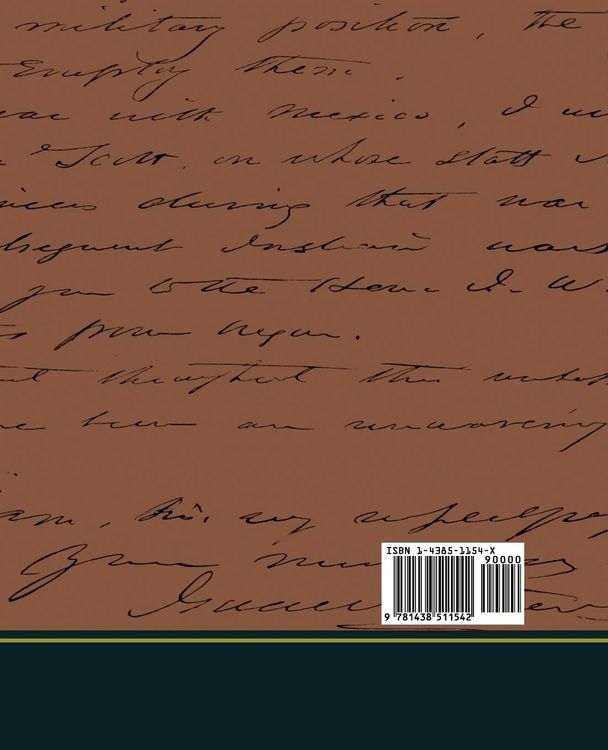 military position, the
Employ them.
war with Mexico, I
Scott, on whose staff
during that war
subsequent Indian wars
you to the Hon. I. W.
power began.
throughout this
been an unwavering
am, Sir, very respectfully
Your
Isaac
ISBN 1-4385-1154-X
90000
9 781438 511542